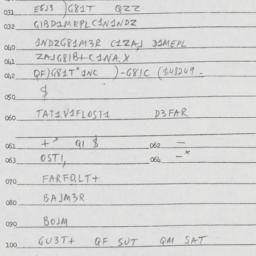 031 E6J3 )G81T QZZ
032 GIBD1MEPLC1N1NDZ
040 1NDZG81M3R C1ZAJ D1MEPL
041 ZAJG81B+C1NA.X
042 QF)G81T*1NC )-G81C (1U3249-
$
050
060 TAT1V1FLOST1 D3FAR
061 +* Q1 $ 062 -
063 OST1, 064 -*
070 FARFD.LT+
080 BAJM3R
090 BOJM
100 GU3T+ QF SUT QM SAT